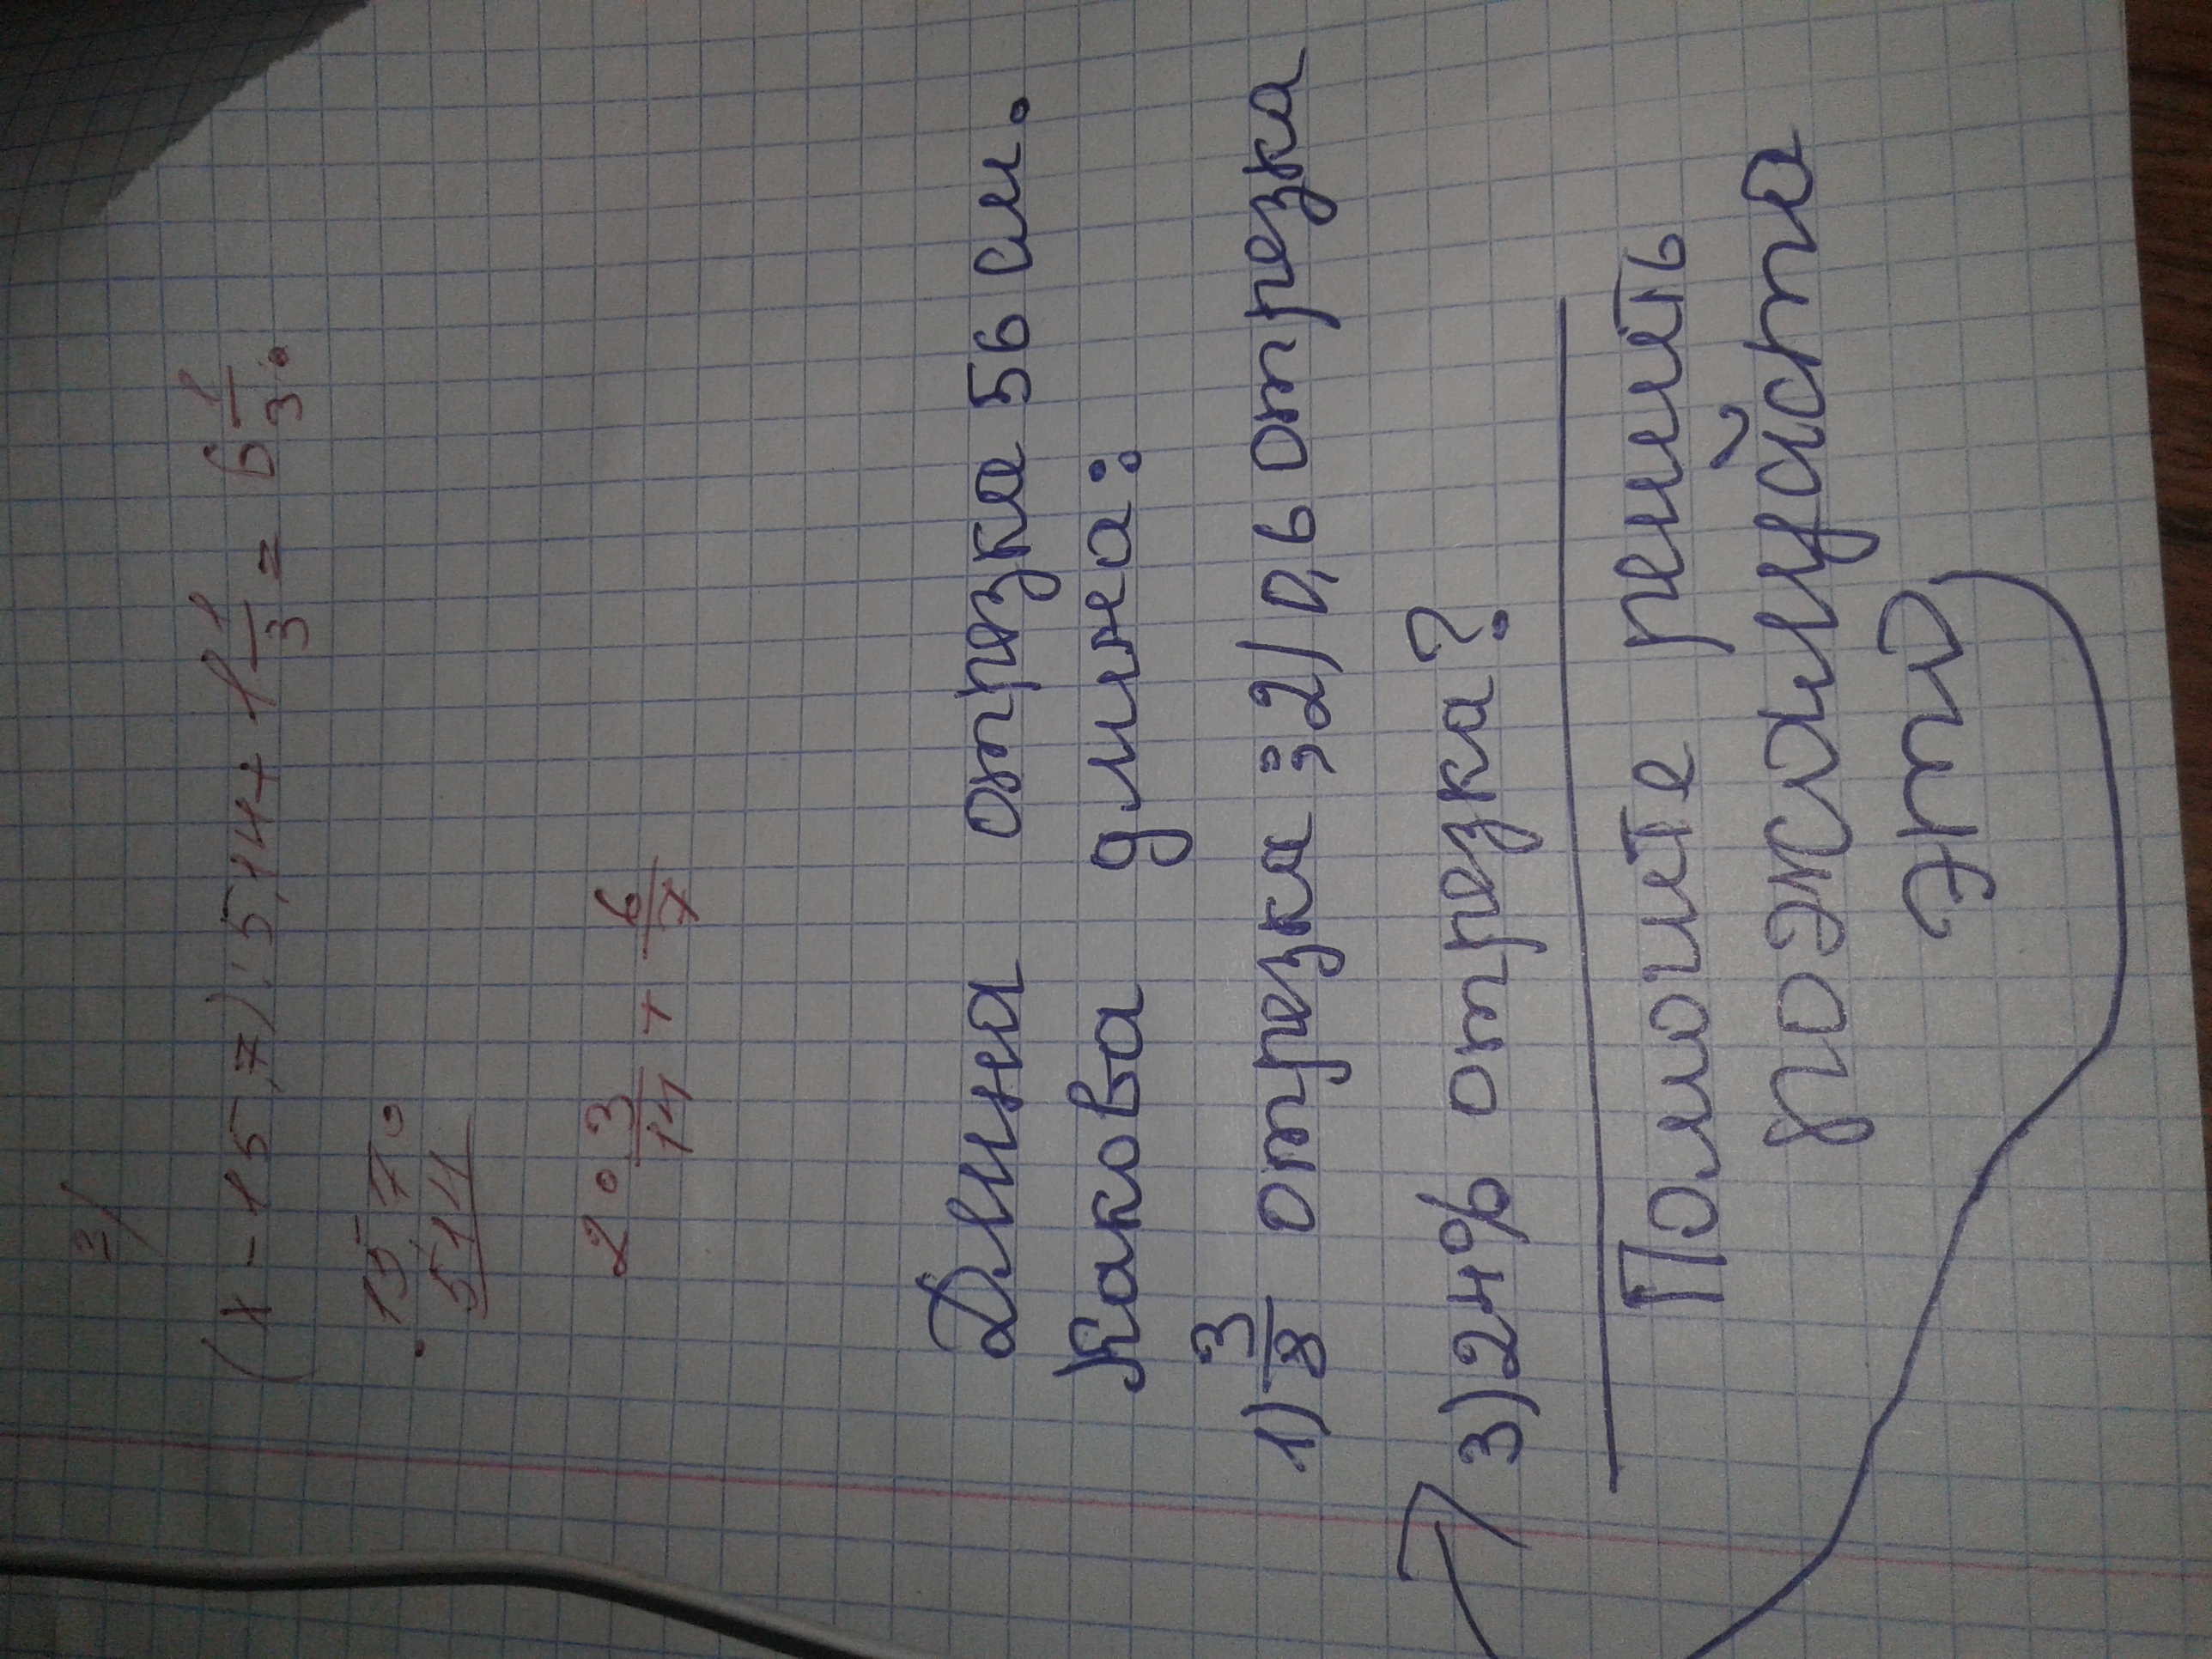 =/
(x-15,7):5,14+1 1/3=6 1/3.
2 3/14 + 6/7
Длина отрезка 56 см.
Какова длина:
1) 3/8 отрезка ; 2) 0,6 отрезка
3) 24% отрезка?
Помоите решить
пожалуйста
это